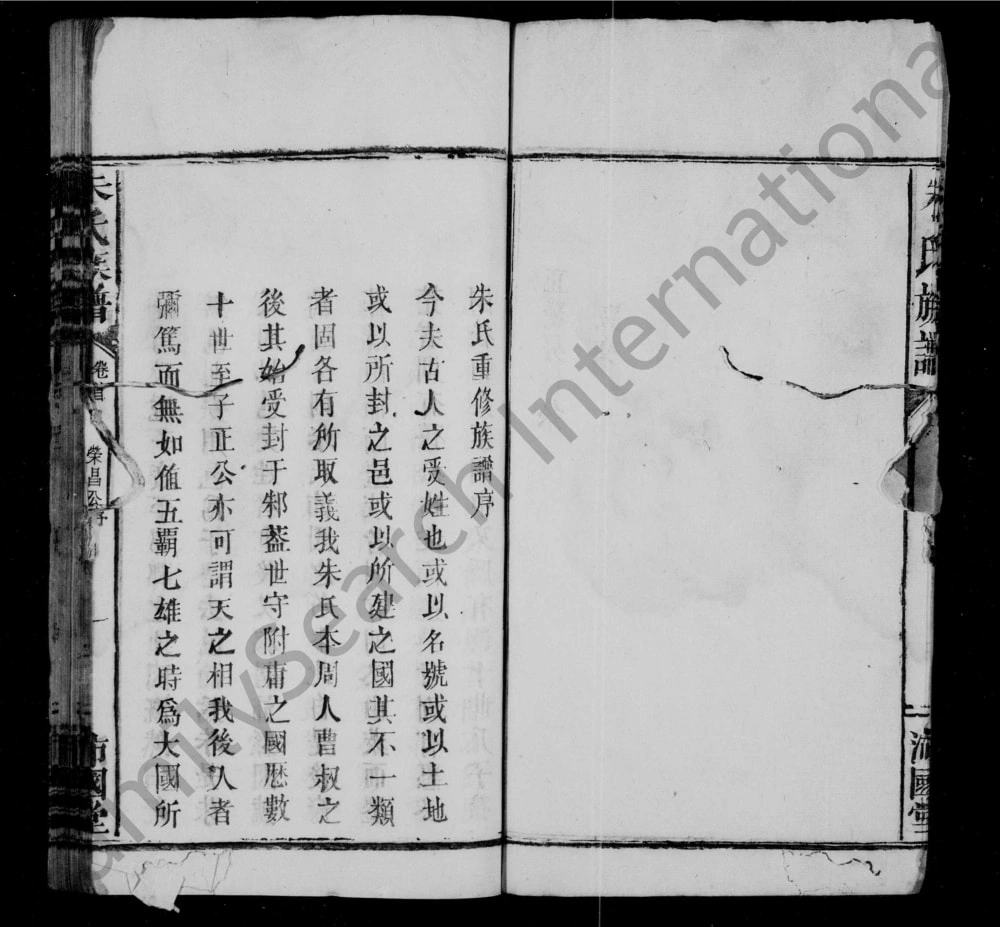 朱氏族譜
沛國堂
朱氏重修族譜序
今夫古人之受姓也或以名號或以土地
或以所封之邑或以所建之國其不一類
者固各有所取義我朱氏本周人曹叔之
後其始受封于邾蓋世守附庸之國歷數
十世至子正公亦可謂天之相我後人者
彌篤而無如值五霸七雄之時爲大國所
朱氏族譜
卷首
榮昌公序
一
沛國堂
FamilySearch International